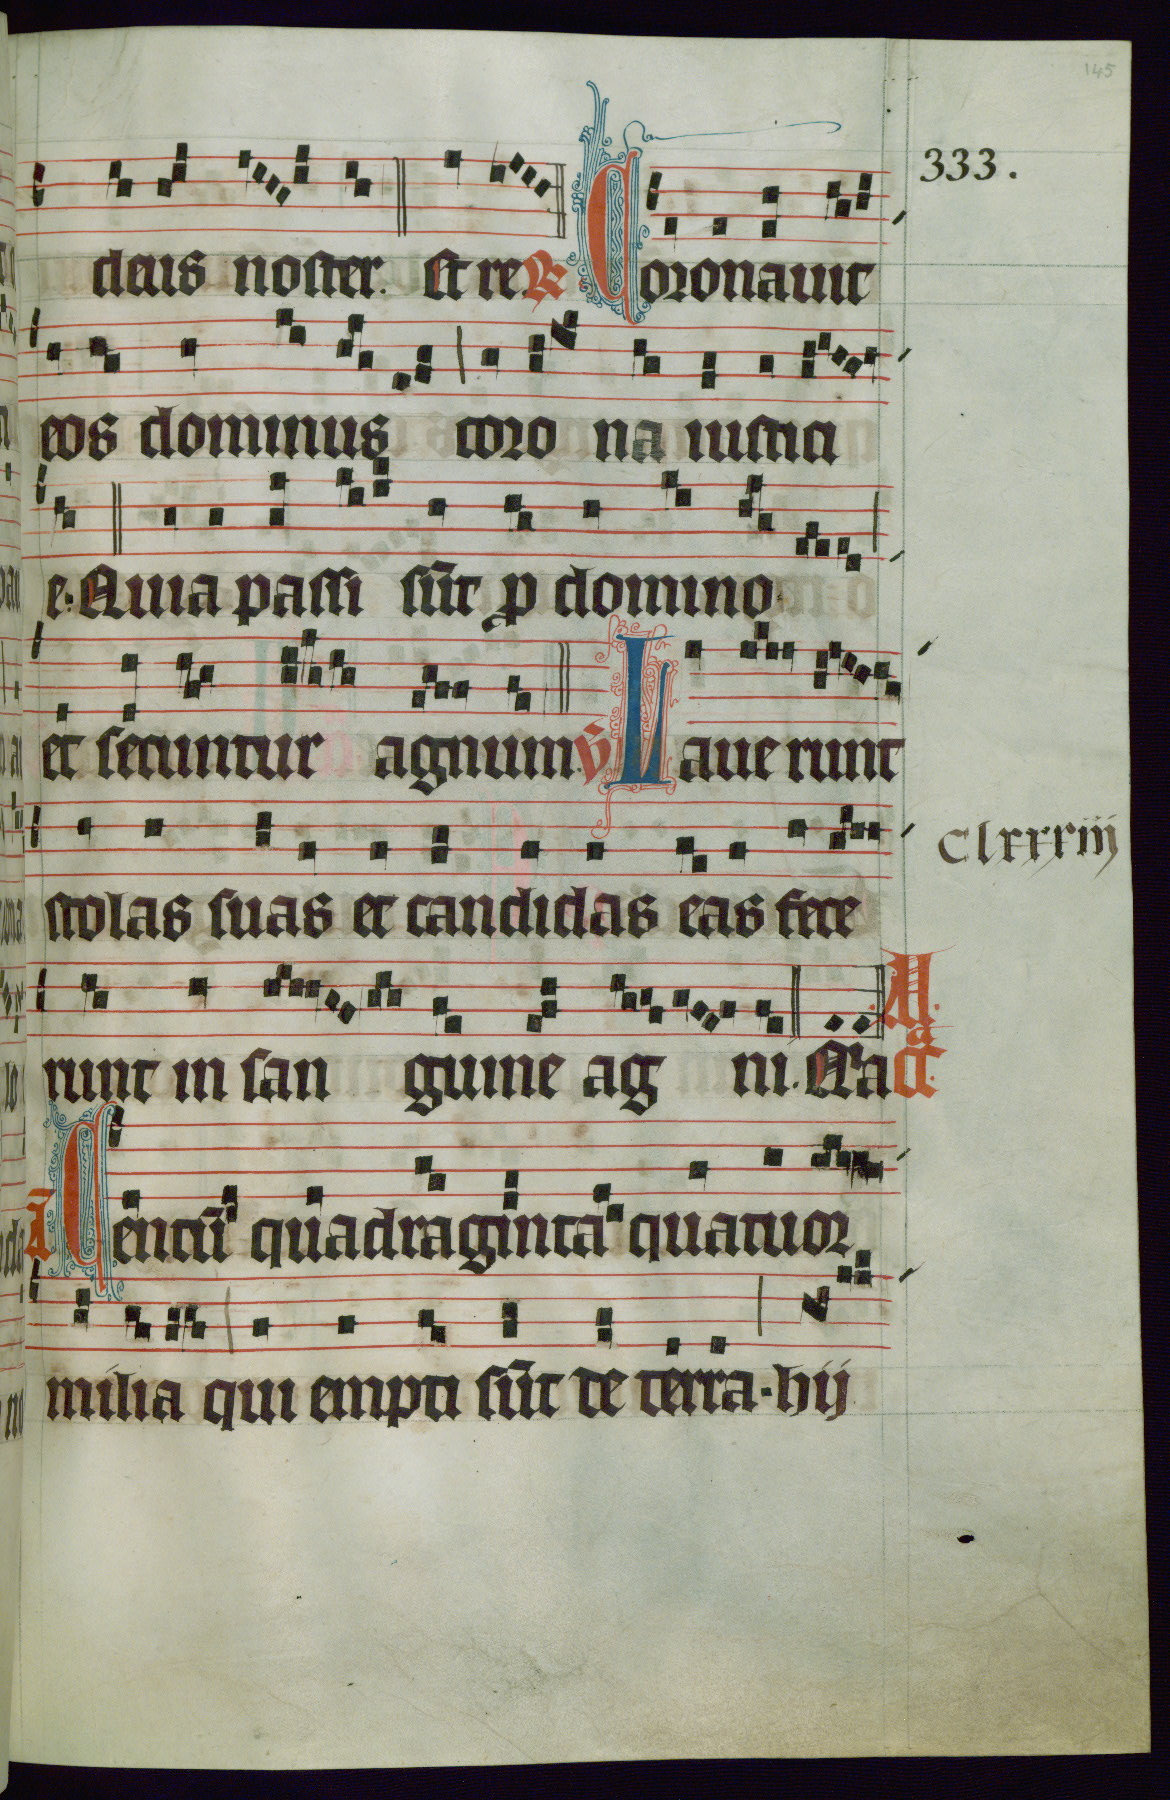 145
333.
deus noster. st re R Coronauit
eos dominus coro na iustici
e. Quia passi sūt p domino
et secuntur agnum. v̄ Laue runt
stolas suas et candidas eas fece
Clxxxiij
runt in san guine ag ni. Quia
A Centū quadraginta quatuor
milia qui empti sūt de terra. hij